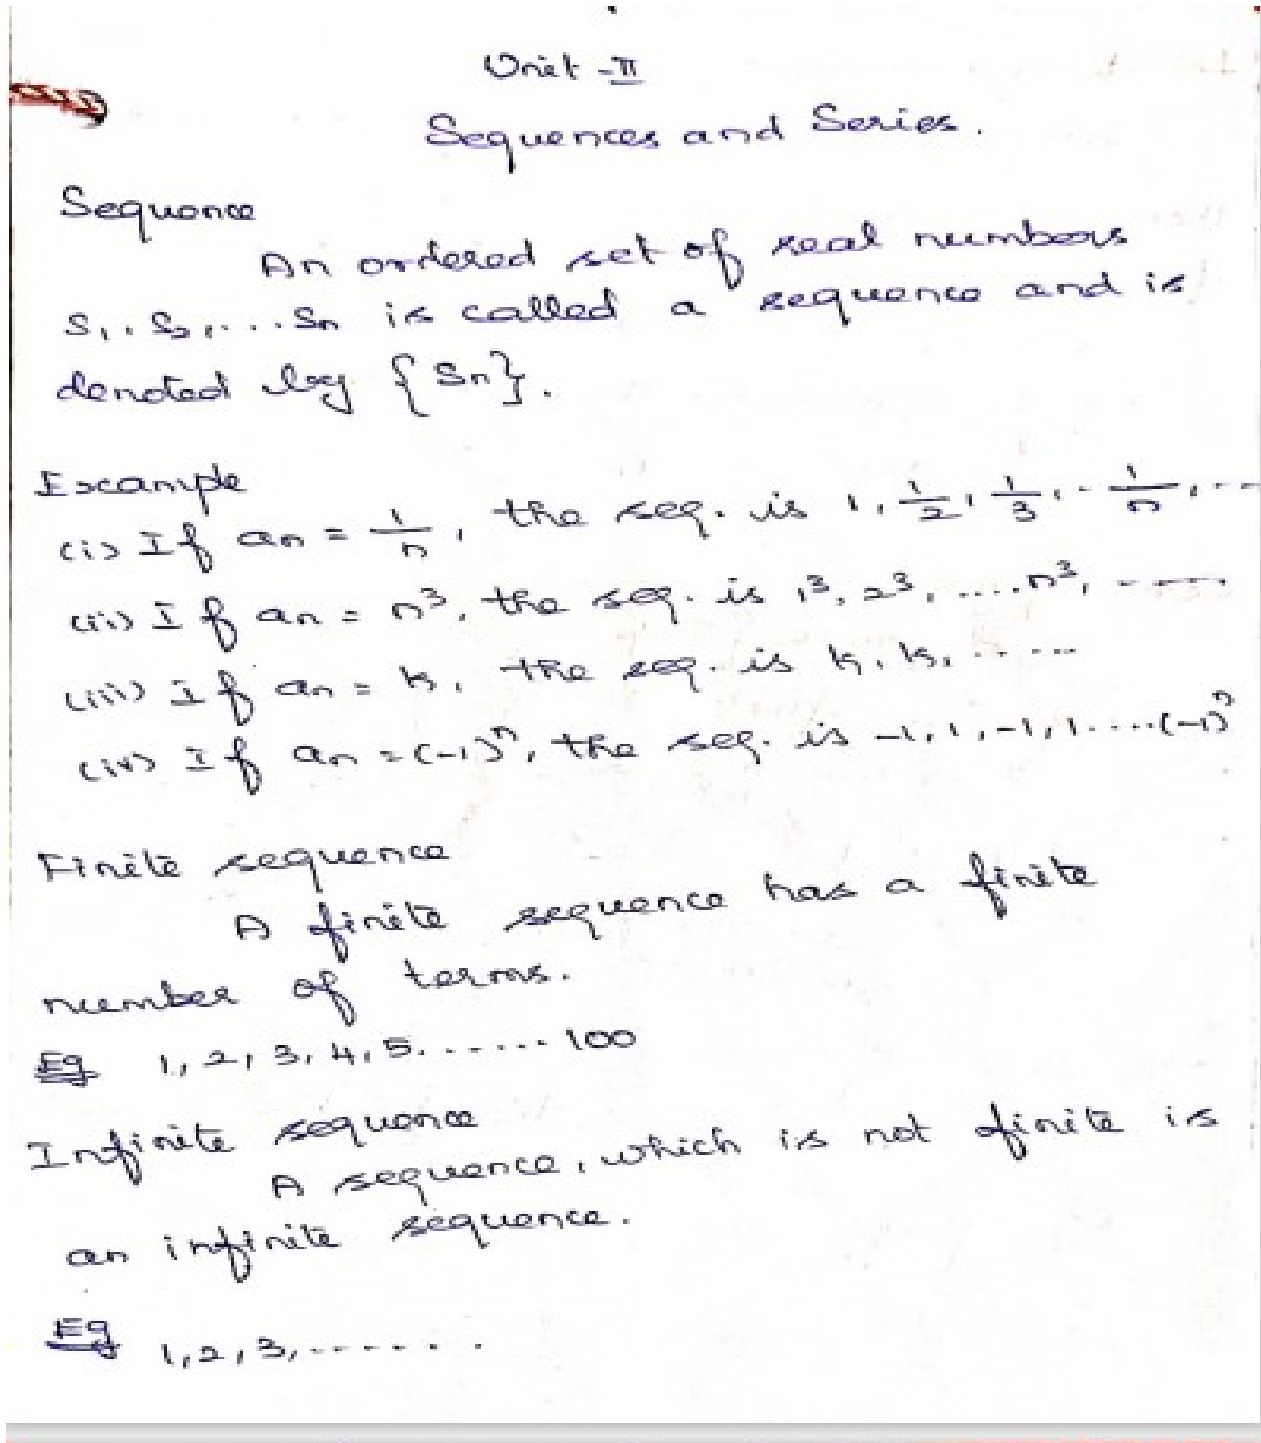 Unit - II
Sequences and Series.
Sequence
An ordered set of real numbers
S₁, S₂, ... Sn is called a sequence and is
denoted by {Sn}.
Example
(i) If an = 1/n, the seq. is 1, 1/2, 1/3, .. 1/n, ...
(ii) If an = n³, the seq. is 1³, 2³, .... n³, ----
(iii) If an = k, the seq. is k, k, .....
(iv) If an = (-1)ⁿ, the seq. is -1, 1, -1, 1 .... (-1)ⁿ
Finite sequence
A finite sequence has a finite
number of terms.
Eg 1, 2, 3, 4, 5. ...... 100
Infinite sequence
A sequence, which is not finite is
an infinite sequence.
Eg 1, 2, 3, .......